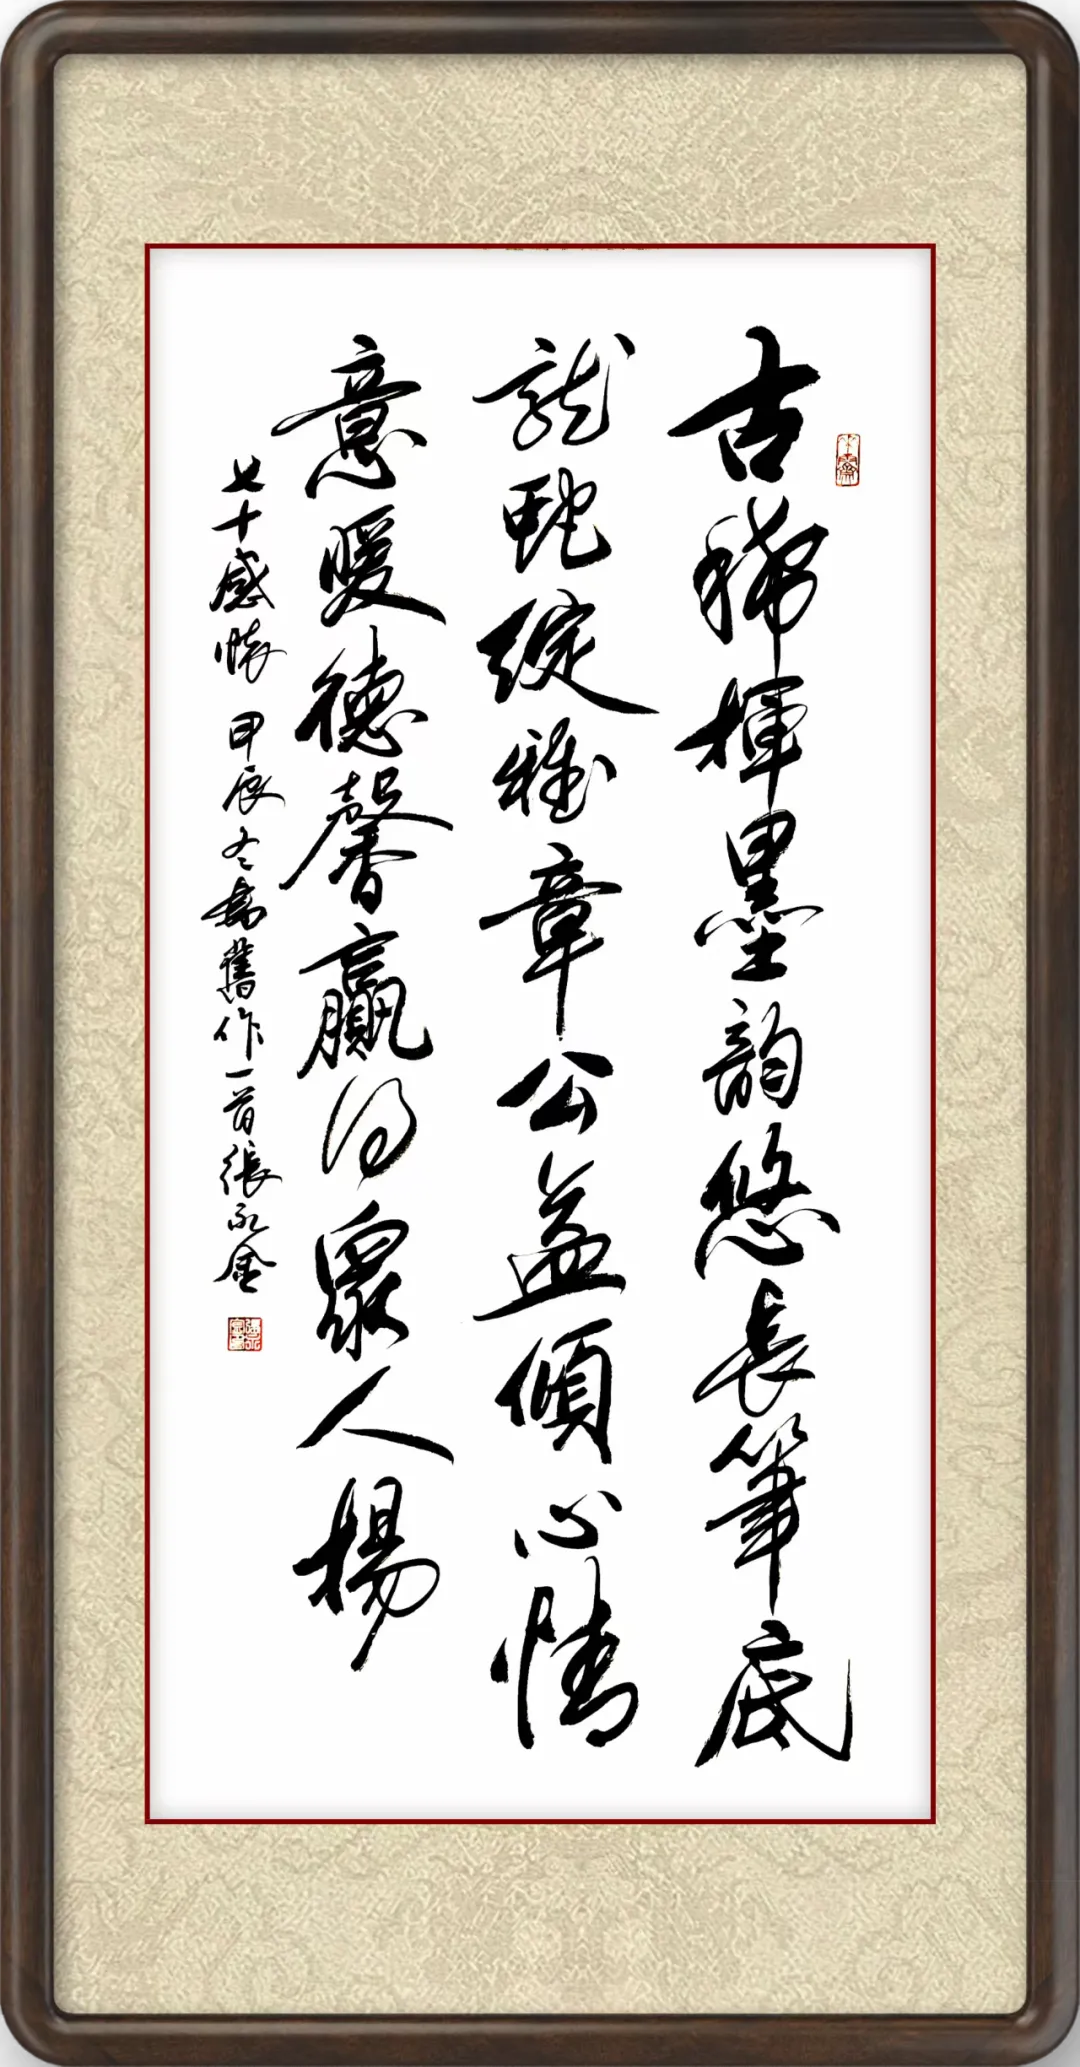 古稀揮墨韵悠長筆底
龍蛇綻雅章公益傾心情
意暖德馨贏得衆人揚
七十感懷 甲辰冬舊作一首張永金